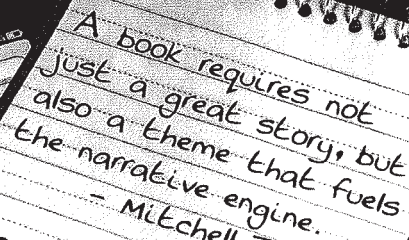 A book requires not
just a great story, but
also a theme that fuels
the narrative engine.
- Mitchell